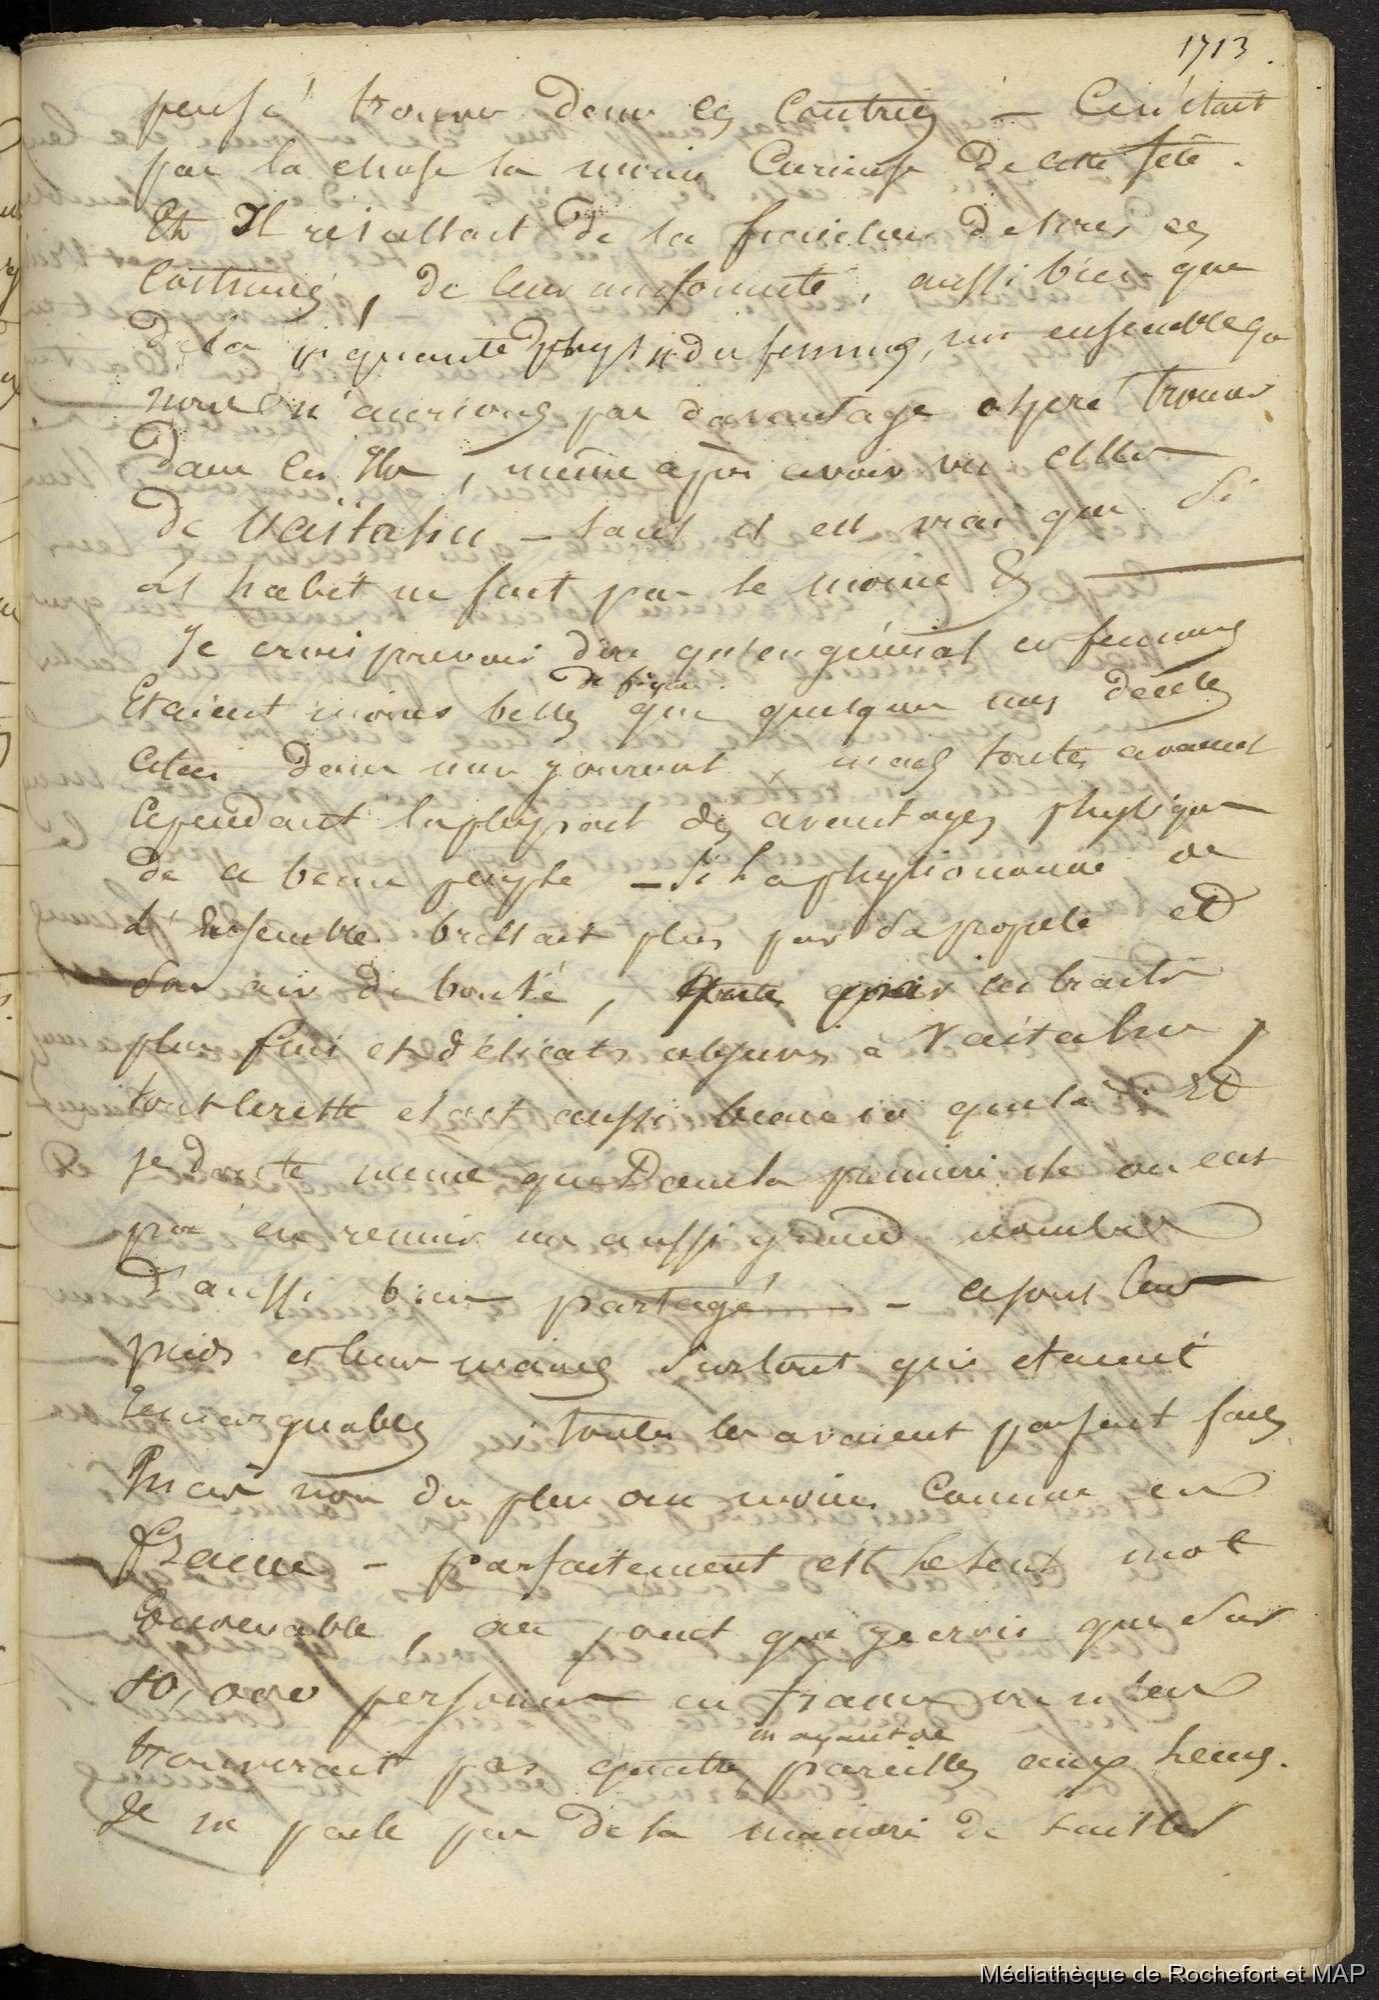 1713
pensé trouver dans ces Contrées — Ce n'était
pas la chose la moins Curieuse de cette fête.
Et Il résultait de la fraicheur de tous ces
Costumes, de leur uniformité, aussi bien que
de la piquante phys des femmes, un ensemble que
nous n'aurions pas davantage espéré trouver
dans les Iles, même après avoir vu celles
de Vaïtahu — tant il est vrai que Si
L'habit ne fait pas le moine &
Je crois pouvoir dire qu'en général ces femmes
de figure
Etaient moins belles que quelques unes de celles
citées dans mon journal, mais toutes avaient
Cependant la plupart des avantages physiques
de ce beau peuple — Si La physionomie ou
L'Ensemble brillait plus par sa propreté et
son air de bonté, que par les traits
plus fins et délicats acquis à Vaïtahu,
tout le reste était aussi beau ici que là. Et
je doute même que Dans la première île on eut
pu en réunir un aussi grand nombre
D'aussi bien partagé — ce sont leurs
pieds et leurs mains surtout qui étaient
remarquables; toutes les avaient parfait faits
Mais non du plus ou moins Comme en
France — parfaitement est le seul mot
Convenable, au point que je crois que sur
10,000 personnes en france on n'en
en ayant de
trouverait pas quatre, pareilles aux leurs.
Je ne parle pas de la manière de tailler
Médiathèque de Rochefort et MAP